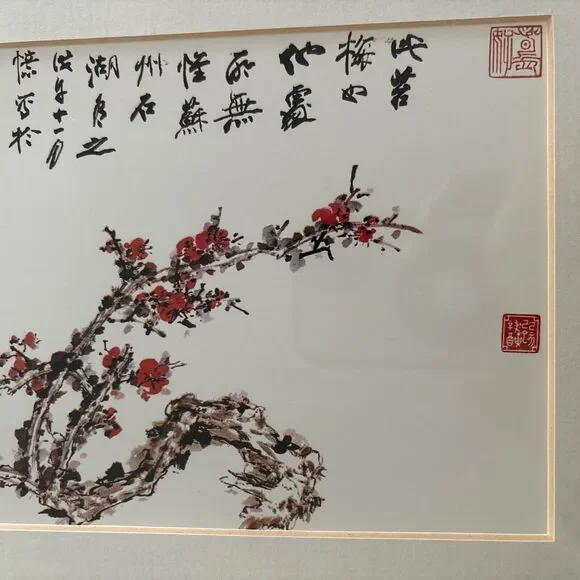 此苔
梅也
他處
所無
惟蘇
州石
湖有之
戊午十一月
憶寫於